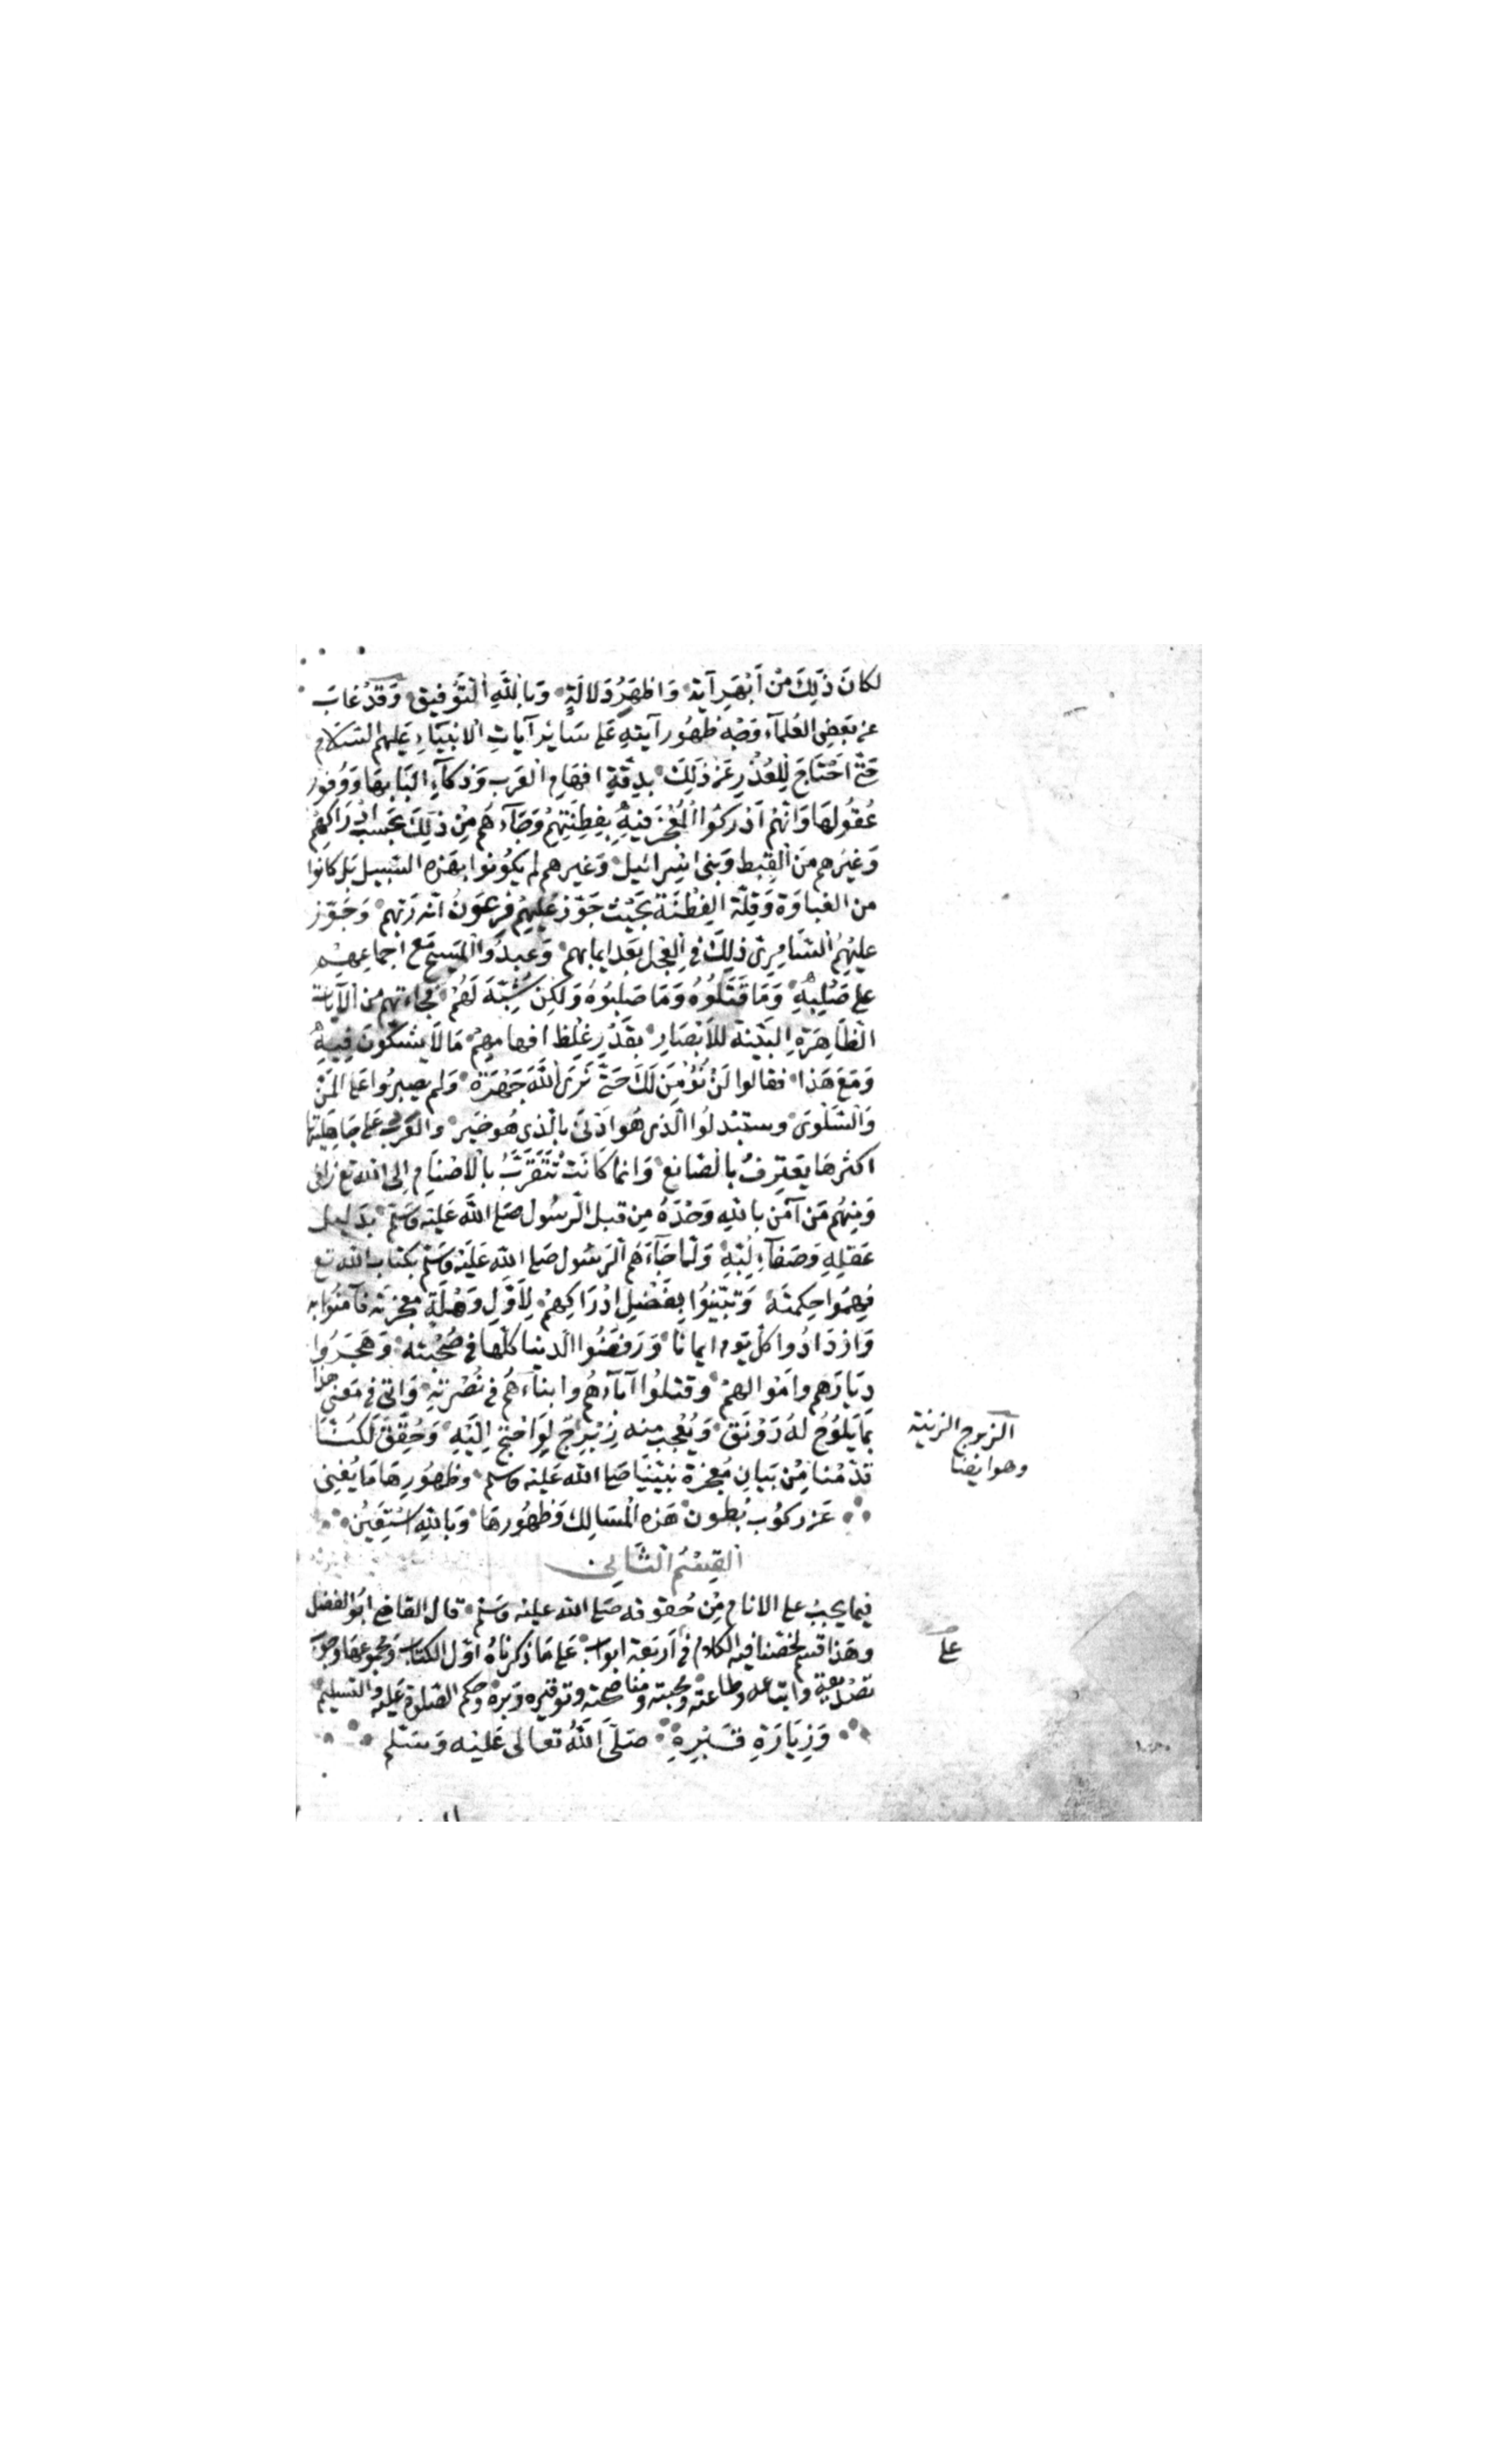 لكَانَ ذَلِكَ مِنْ أَبْهَرِ آيَة وَاظهَرُ دَلالَةٍ وَبِاللَّهِ التَّوْفيق وَقَدْ غابَ
عن بَعضِ العُلمآء وَجْه ظهُور آيتِهِ عَلى سَايرْ آيَاتِ الانبيَاءِ عَليهم السَّلام
حَتَّى احْتَاجَ لِلعُذْرِ عَن ذَلِكَ بدِقَّةِ افهَامِ العَرب وَذكآءِ البَابهَا وَوُفور
عُقُولهَا وَانَّهمْ اَدْرَكُوا المُعْجِزَ فيهِ بفِطنَتِهِمْ وَجَآءَهُم مِن ذلِكَ بحَسب ادْرَاكِهِمْ
وَغيرَهم مِنَ القِبط وَبَنى اسِرائيل وَغيرهم لم يَكُونوا بهَذه السَّبيل بَل كانوا
من الغباوَة وَقِلّة الفِطْنَة بحَيْث جَوّز عَليهِم فِرعَونُ انّه رَبّهم وَجَوّز
عليهِمُ السَّامِرِىّ ذلِكَ فى العِجل بَعَد ايمانهم وَعَبدُوا المَسِيحَ مَع اجماعِهِمْ
على صَلْبِهِ وَمَا قَتَلُوُه وَمَا صَلبُوُهُ وَلكِن شُبِّهَ لَهُمْ فجاءَتهم من الآيات
الظاهِرَةِ البَيّنة للأبْصَارِ بقَدْرِ غِلَظ افهامِهِمْ مَا لاَ يشكّونَ فِيهِ
وَمَعَ هَذا فقالوا لَنْ نُؤْمِنَ لَكَ حَتَّى نَرَى اللَّهَ جَهْرَة وَلم يصبرُوا عَلى المَنّ
وَالسَّلْوَى وستبْدلُوا الذى هُوَ ادْنى بالّذى هُوَ خَير والعَرب عَلى جَاهِليّتها
اكثرهَا يعَترِفُ بالصّانع وَانما كَانَتْ تتَقَرَّبُ بالأصْنَامِ الى الله تع زلفى
وَمِنهُم مَن آمَن بِاللهِ وَحْدَهُ مِن قبل الرسُول صَلى اللهُ عَليْه وَسَلّم بدَليل
عَقلِهِ وَصَفآءِ لُبّهِ وَلمّا جَآءَهُم الرَسُول صَلى اللهِ عَليَه وَسَلم بكتاب الله تع
فهِمُوا حِكمتَه وَتبيّنوُا بِفَضلِ ادْرَاكِهِمْ لِأوّلِ وَهْلَةٍ معجزتَه فآمَنُوا به
وَازدَادُوا كل يَوم ايمانًا وَرَفضُوا الدنيا كلّها فى صُحْبَتِه وَهَجَرُوا
دِيَارَهم وامْوالهمْ وقتلُوا آبآءهُم وابناءَهُم فى نُصْرَتِه وَاتى فى مَعْنى هذا
بمَا يَلوُحُ لهُ رَوْنَق وَيُعْجِب منه زِبْرِجٌ لَوِ احْتِيجَ اِليَهِ وَحُقِّقَ لكنَّا
قدّمْنَا مِنْ بَيَانِ مُعْجِزة نبيّنا صَلى الله عَليْه وسلم وظهُورِهَا مَا يُغنِى
عَن ركوُب بُطون هَذه المسَالِك وَظهُورهَا وَبِاللهِ اسْتَعِينُ
القِسْمُ الثَّانى
فيما يجب على الانام مِن حُقوقه صَلى الله عليْه وَسَلم قال القاضى ابُو الفضل
وهَذا قسم لخصْنا فيه الكلام فى اَرْبَعة ابواب عَلى مَا ذكرناهُ اوّل الكتاب وَمجموعهَا وجوب
تصْديقه واتباعه وطاعته ومحبته ومناصحته وتوقيره وبرّهُ وحكم الصَلوة عَليْه والتسليم
وَزِيَارَةِ قَبْرِهِ صَلّى اللهُ تعَالى عَليْه وَسَلّم
الزبرج الزينة
وهو ايضا
على